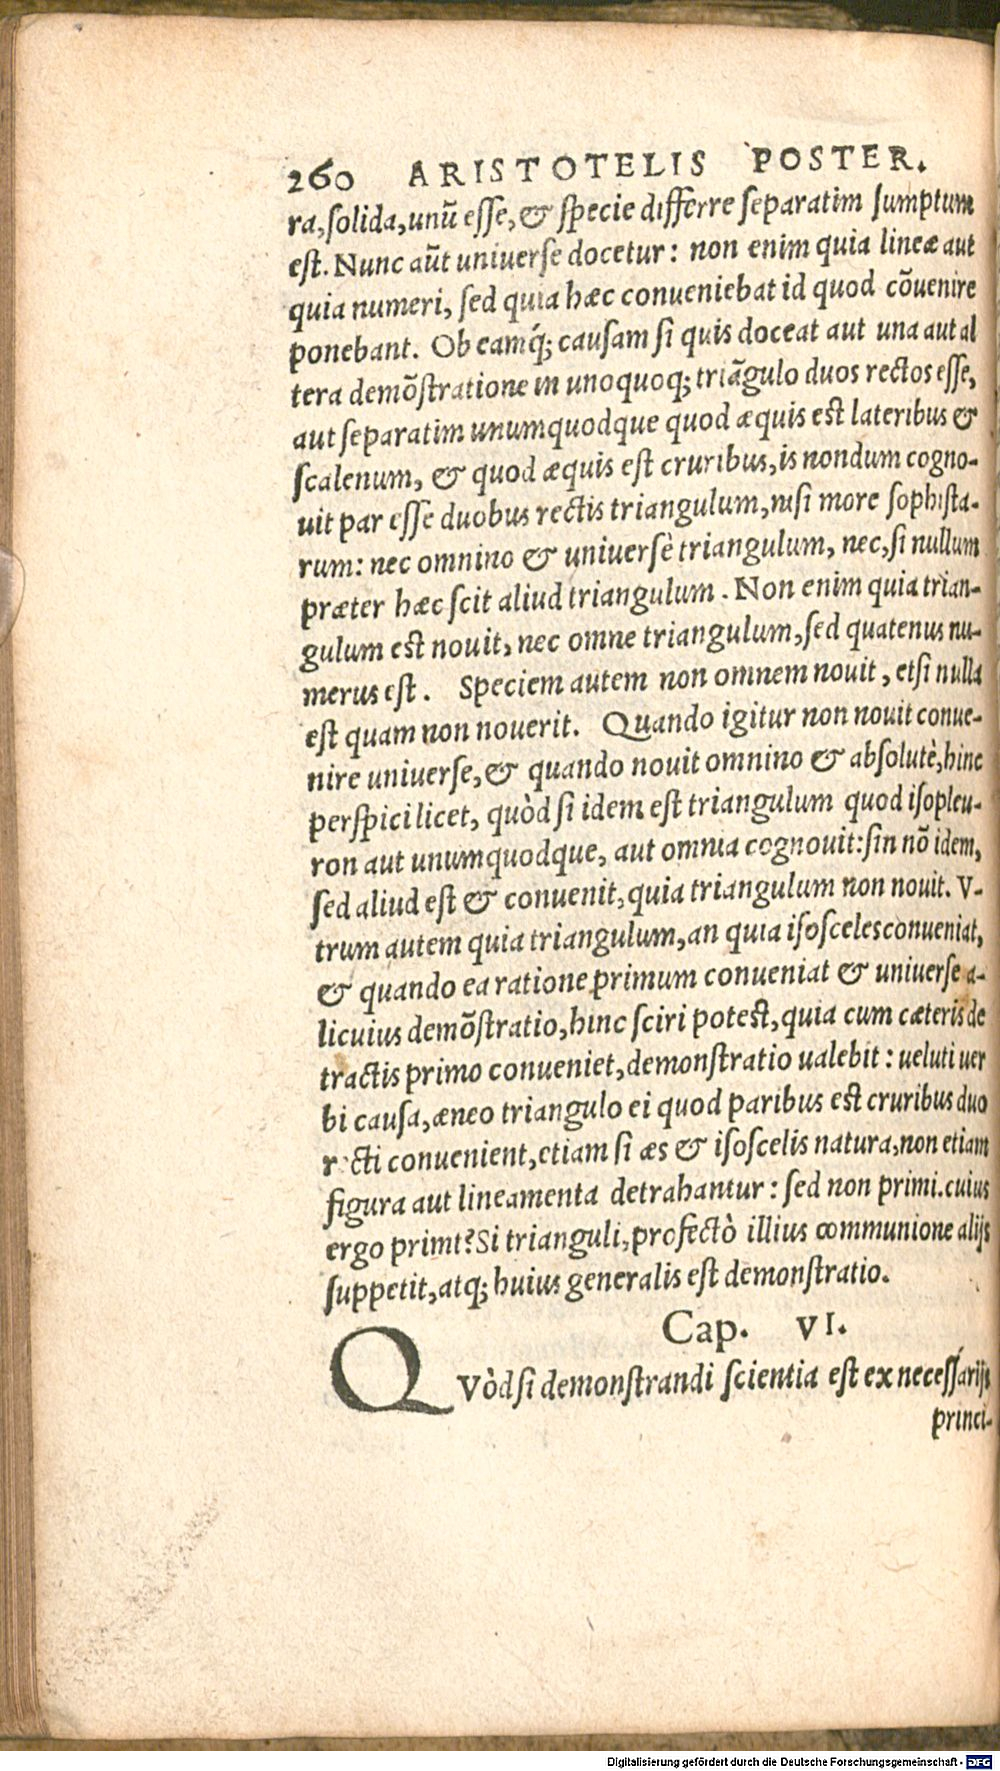 260 ARISTOTELIS POSTER.
ra, solida, unū esse, & specie differre separatim sumptum
est. Nunc aūt uniuerse docetur: non enim quia lineæ aut
quia numeri, sed quia hæc conueniebat id quod cōuenire
ponebant. Ob eamq́; causam si quis doceat aut una aut al
tera demōstratione in unoquoq; triāgulo duos rectos esse,
aut separatim unumquodque quod æquis est lateribus &
scalenum, & quod æquis est cruribus, is nondum cogno-
uit par esse duobus rectis triangulum, nisi more sophista-
rum: nec omnino & uniuersè triangulum, nec, si nullum
præter hæc scit aliud triangulum. Non enim quia trian-
gulum est nouit, nec omne triangulum, sed quatenus nu-
merus est. Speciem autem non omnem nouit, etsi nulla
est quam non nouerit. Quando igitur non nouit conue-
nire uniuerse, & quando nouit omnino & absolutè, hinc
perspici licet, quòd si idem est triangulum quod isopleu-
ron aut unumquodque, aut omnia cognouit: sin nō idem,
sed aliud est & conuenit, quia triangulum non nouit. V-
trum autem quia triangulum, an quia isosceles conueniat,
& quando ea ratione primum conueniat & uniuerse a-
licuius demōstratio, hinc sciri potest, quia cum cæteris de
tractis primo conueniet, demonstratio ualebit: ueluti uer
bi causa, æneo triangulo ei quod paribus est cruribus duo
recti conuenient, etiam si æs & isoscelis natura, non etiam
figura aut lineamenta detrahantur: sed non primi. cuius
ergo primi? Si trianguli, profectò illius communione alijs
suppetit, atq; huius generalis est demonstratio.
Cap. VI.
QVòd si demonstrandi scientia est ex necessárijs
princi-
Digitalisierung gefördert durch die Deutsche Forschungsgemeinschaft - DFG